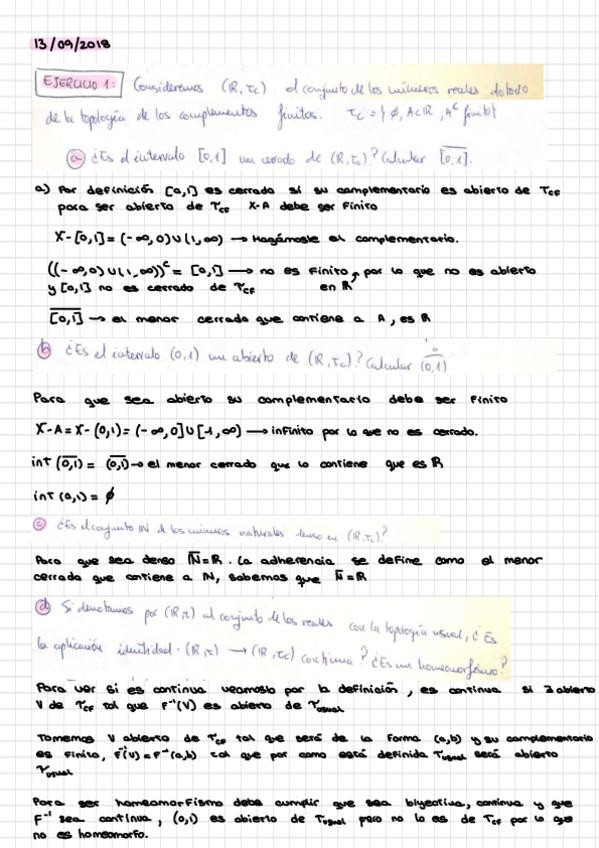 13/09/2018
EJERCICIO 1: Consideremos (ℝ, τc) el conjunto de los números reales dotado
de la topología de los complementos finitos. τc = { ∅, A⊂ℝ, Aᶜ finito}
a) ¿Es el intervalo [0,1] un cerrado de (ℝ, τc)? Calcular \overline{[0,1]}.
a) Por definición [0,1] es cerrado si su complementario es abierto de τCF
para ser abierto de τCF X-A debe ser finito
X-[0,1] = (-∞,0)∪(1,∞) → Hagámosle el complementario.
((-∞,0)∪(1,∞))ᶜ = [0,1] → no es finito, por lo que no es abierto
y [0,1] no es cerrado de τCF en ℝ
\overline{[0,1]} → el menor cerrado que contiene a A, es ℝ
b) ¿Es el intervalo (0,1) un abierto de (ℝ, τc)? Calcular \overset{o}{\overline{(0,1)}}
Para que sea abierto su complementario debe ser finito
X-A = X-(0,1) = (-∞,0]∪[-1,∞) → infinito por lo que no es cerrado.
int (\overline{0,1}) = (\overline{0,1}) → el menor cerrado que lo contiene que es ℝ
int (0,1) = ∅
c) ¿Es el conjunto ℕ de los números naturales denso en (ℝ, τc)?
Para que sea denso \overline{ℕ}=ℝ. La adherencia se define como el menor
cerrado que contiene a ℕ, sabemos que \overline{ℕ}=ℝ
d) Si denotamos por (ℝ,τ) al conjunto de los reales con la topología usual, ¿Es
la aplicación identidad. (ℝ,τ) → (ℝ,τc) continua? ¿Es un homeomorfismo?
Para ver si es continua veamoslo por la definición, es continua si ∃ abierto
V de τCF tal que F⁻¹(V) es abierto de τusual
Tomemos V abierto de τCF tal que será de la forma (a,b) y su complementario
es finito, F⁻¹(V) = F⁻¹(a,b) tal que por como está definida τusual será abierto
τusual
Para ser homeomorfismo debe cumplir que sea biyectiva, continua y que
F⁻¹ sea continua, (0,1) es abierto de τusual pero no lo es de τCF por lo que
no es homeomorfo.